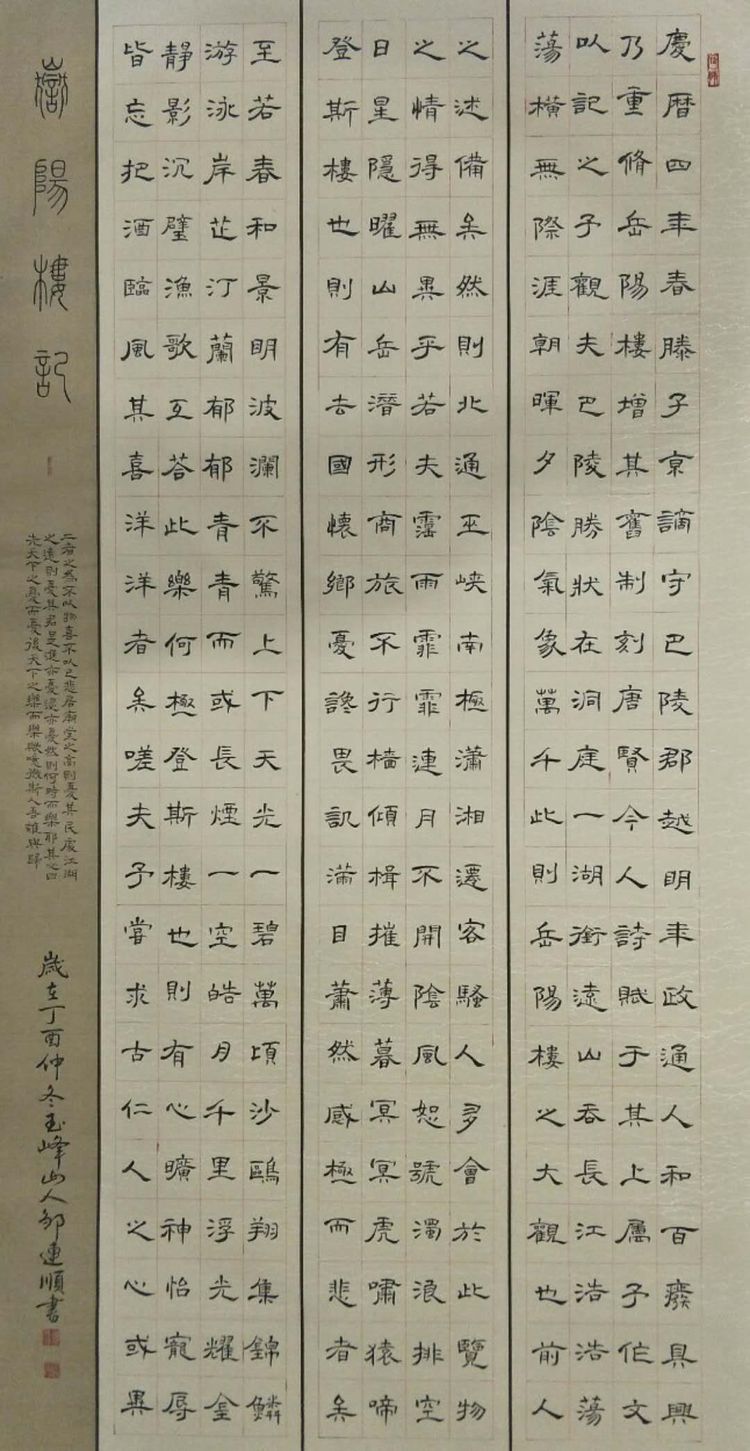 慶曆四年春滕子京謫守巴陵郡越明年政通人和百廢具興
乃重脩岳陽樓增其舊制刻唐賢今人詩賦于其上屬予作文
以記之予觀夫巴陵勝狀在洞庭一湖銜遠山吞長江浩浩蕩
蕩橫無際涯朝暉夕陰氣象萬千此則岳陽樓之大觀也前人
之述備矣然則北通巫峽南極瀟湘遷客騷人多會於此覽物
之情得無異乎若夫霪雨霏霏連月不開陰風怒號濁浪排空
日星隱曜山岳潛形商旅不行檣傾楫摧薄暮冥冥虎嘯猿啼
登斯樓也則有去國懷鄉憂讒畏譏滿目蕭然感極而悲者矣
至若春和景明波瀾不驚上下天光一碧萬頃沙鷗翔集錦鱗
游泳岸芷汀蘭郁郁青青而或長煙一空皓月千里浮光耀金
靜影沉璧漁歌互答此樂何極登斯樓也則有心曠神怡寵辱
皆忘把酒臨風其喜洋洋者矣嗟夫予嘗求古仁人之心或異
嶽陽樓記
二者之為不以物喜不以己悲居廟堂之高則憂其民處江湖
之遠則憂其君是進亦憂退亦憂然則何時而樂耶其必曰
先天下之憂而憂後天下之樂而樂歟噫微斯人吾誰與歸
歲在丁酉仲冬玉峰山人邹連順書